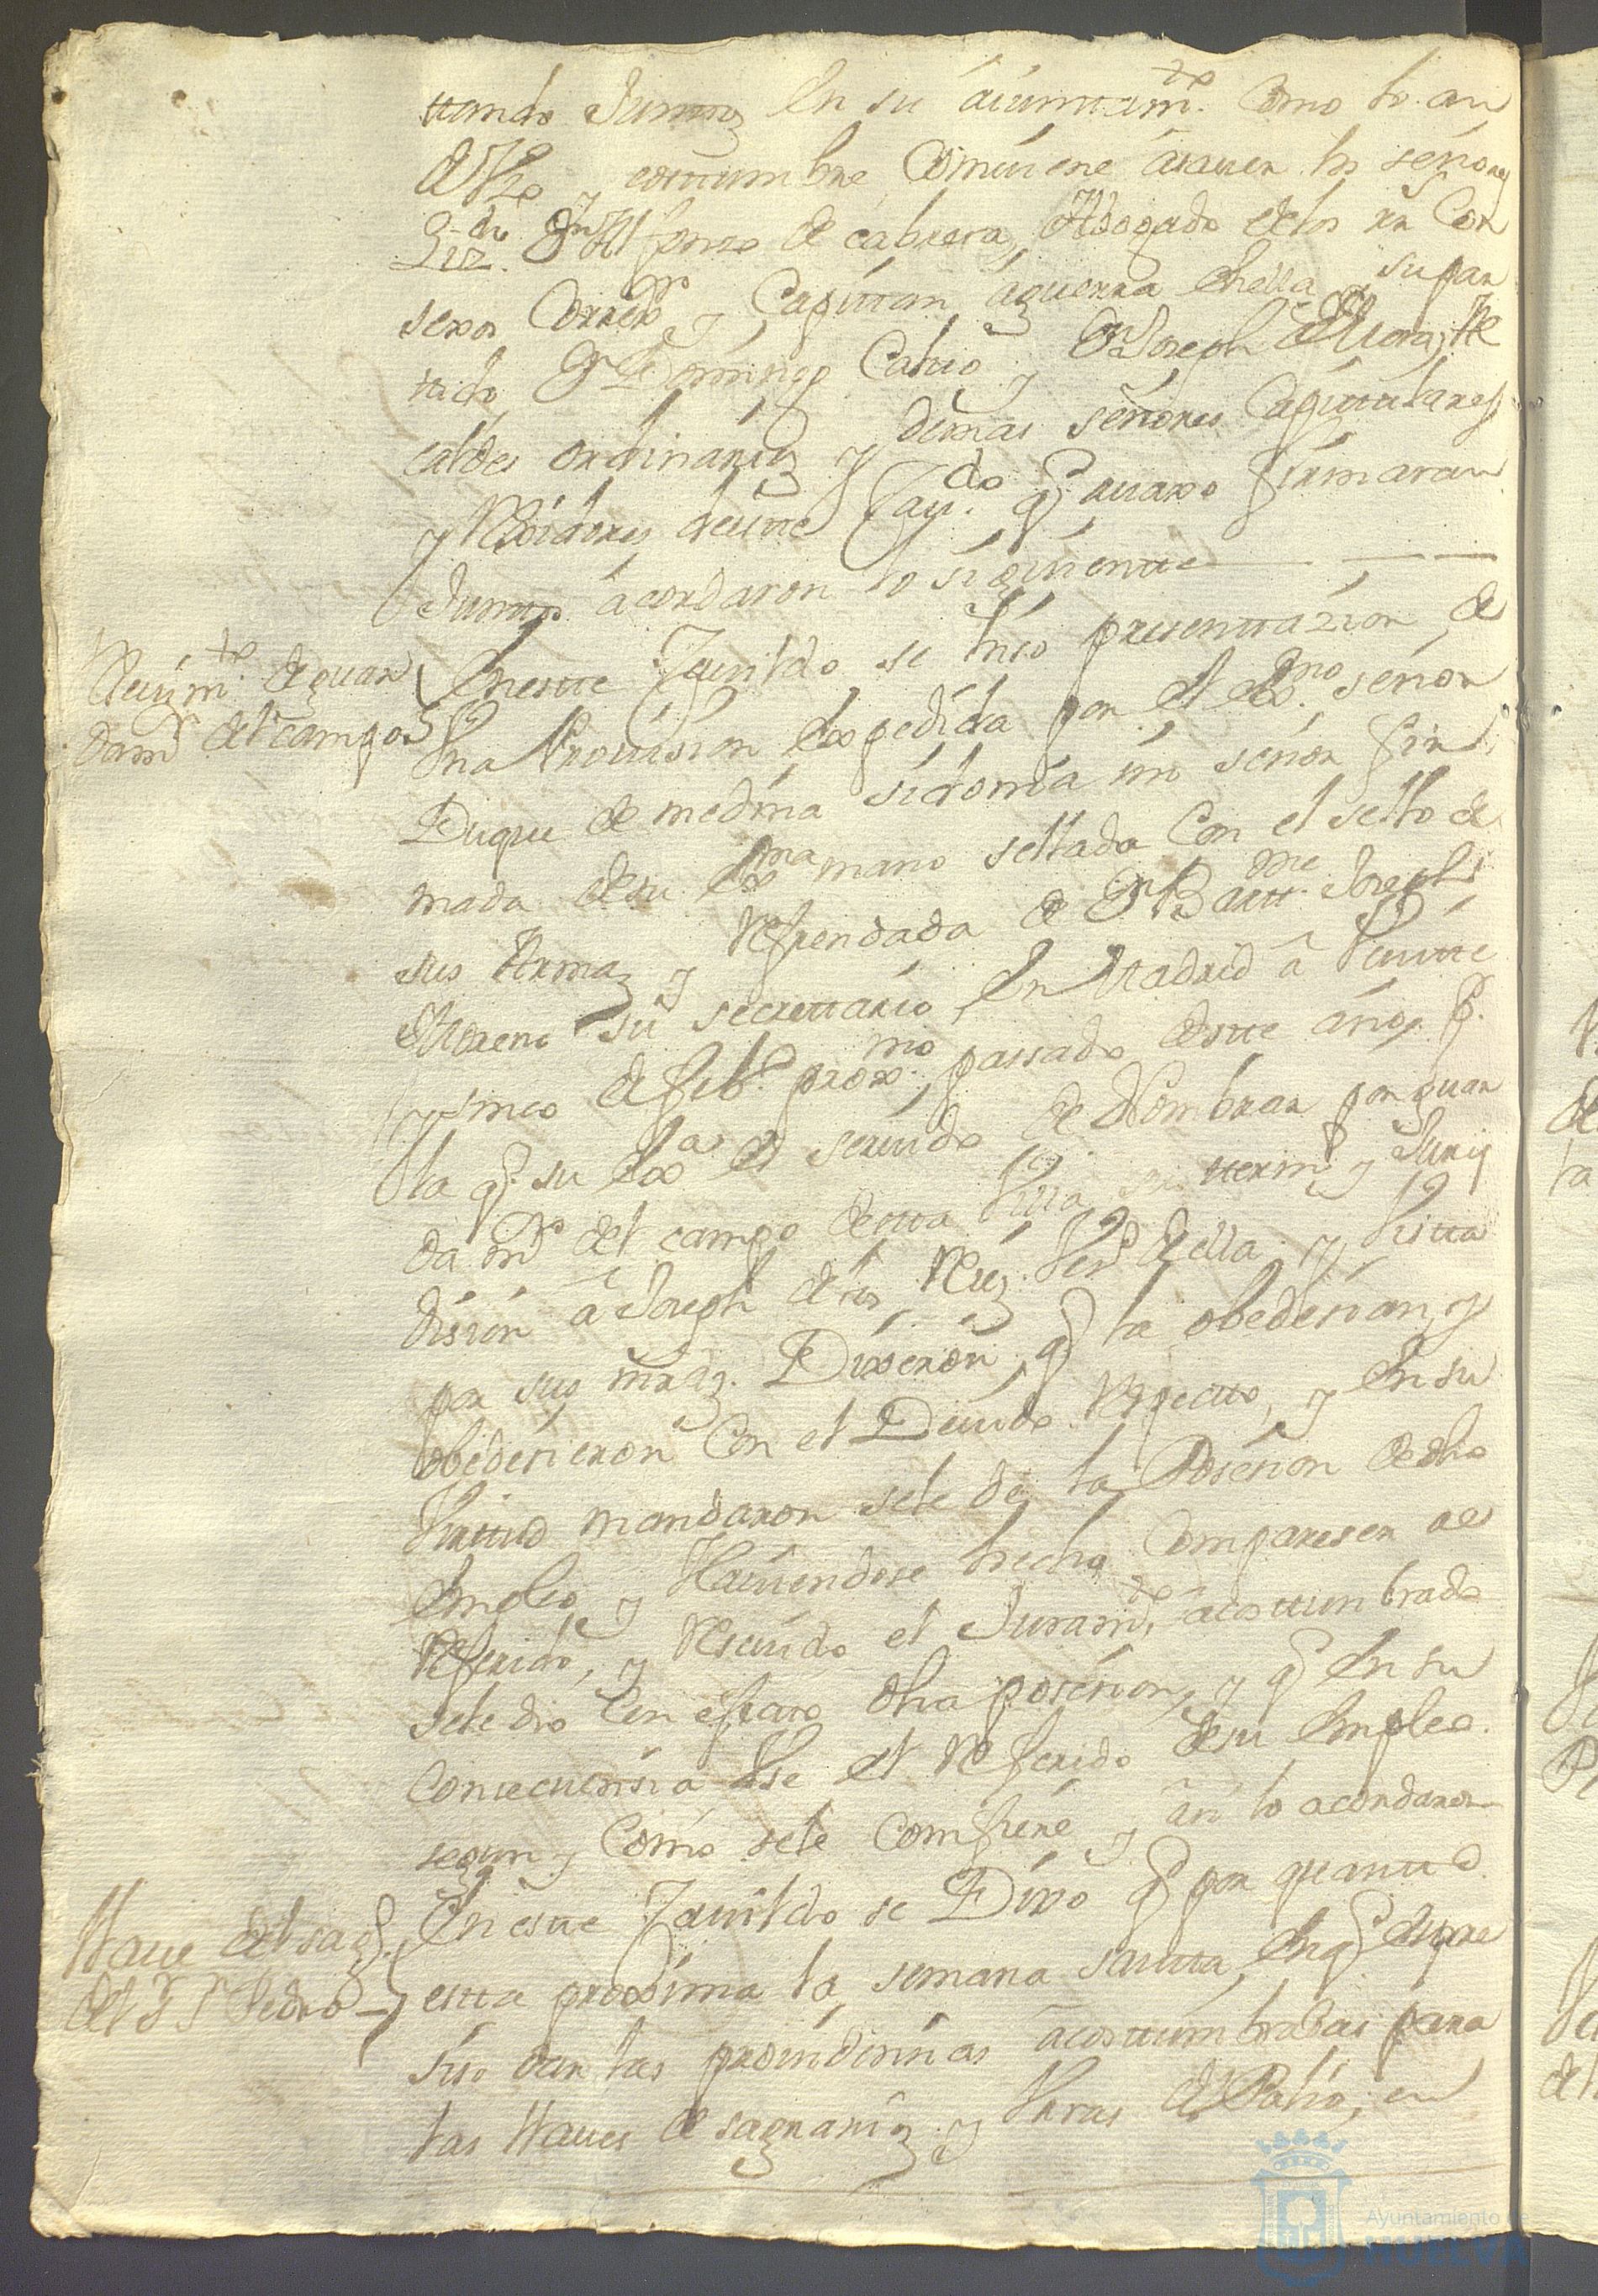 ttando Junttos en su aiunttam.to Como lo an
de Vso y costtumbre Comuiene asauer los señores
Liz.do Dn Alfonso de cabrera, Abogado delos rs Con
sexos Correxr y Capittan aguerra enella y supar
tido Dn Domingo Calvo y Dn Joseph de Mora, Al
caldes ordinarios y demas señores Capittulares
y Rexidores deeste Cau.do q auaxo firmaran
Junttos acordaron lo siguientte
Reciuim.to de guar
dam.r del campo
Enestte Cavildo se hiso presenttazion de
Vna Prouision expedida por el exmo. señor
Duque de medina sidonia mi señor fir
mada desu exma mano sellada Con el sello de
sus Armas y Refrendada de Dn Barttme. Joseph
Moreno su secrettario, en Madrid a Veintte
y sinco de feb.o prox.mo passado destte año, p.
la q su Exa es seruido de Nombrar por guar
da mr del campo destta Villa, su termo y Juris
disión a Joseph delos Reies Vesno della y Vistta
por sus mrds. Dixeron, q la obedesian, y
obedesieron Con el Deuido Respectto, y en su
Virttud mandaron sele de la Posesion de dho
Empleo, y Hauiendose hecho Compareser al
Referido, y Resiuido el Juram.to acosttumbrado
sele dio en efecto dha posesion, y q en su
Consecuensia Vse el Referido desu Empleo
segun y Como sele Comfiere y asi lo acordaron
Llaue del sag.o
del Sr Sn Pedro
Enestte Cavildo se Dixo q por quantto
estta proxima la semana santta, en q espre
siso dar las prouidensias acosttumbradas para
las Llaues de sagrarios y Varas de Palio, en
Ayuntamiento de
HUELVA